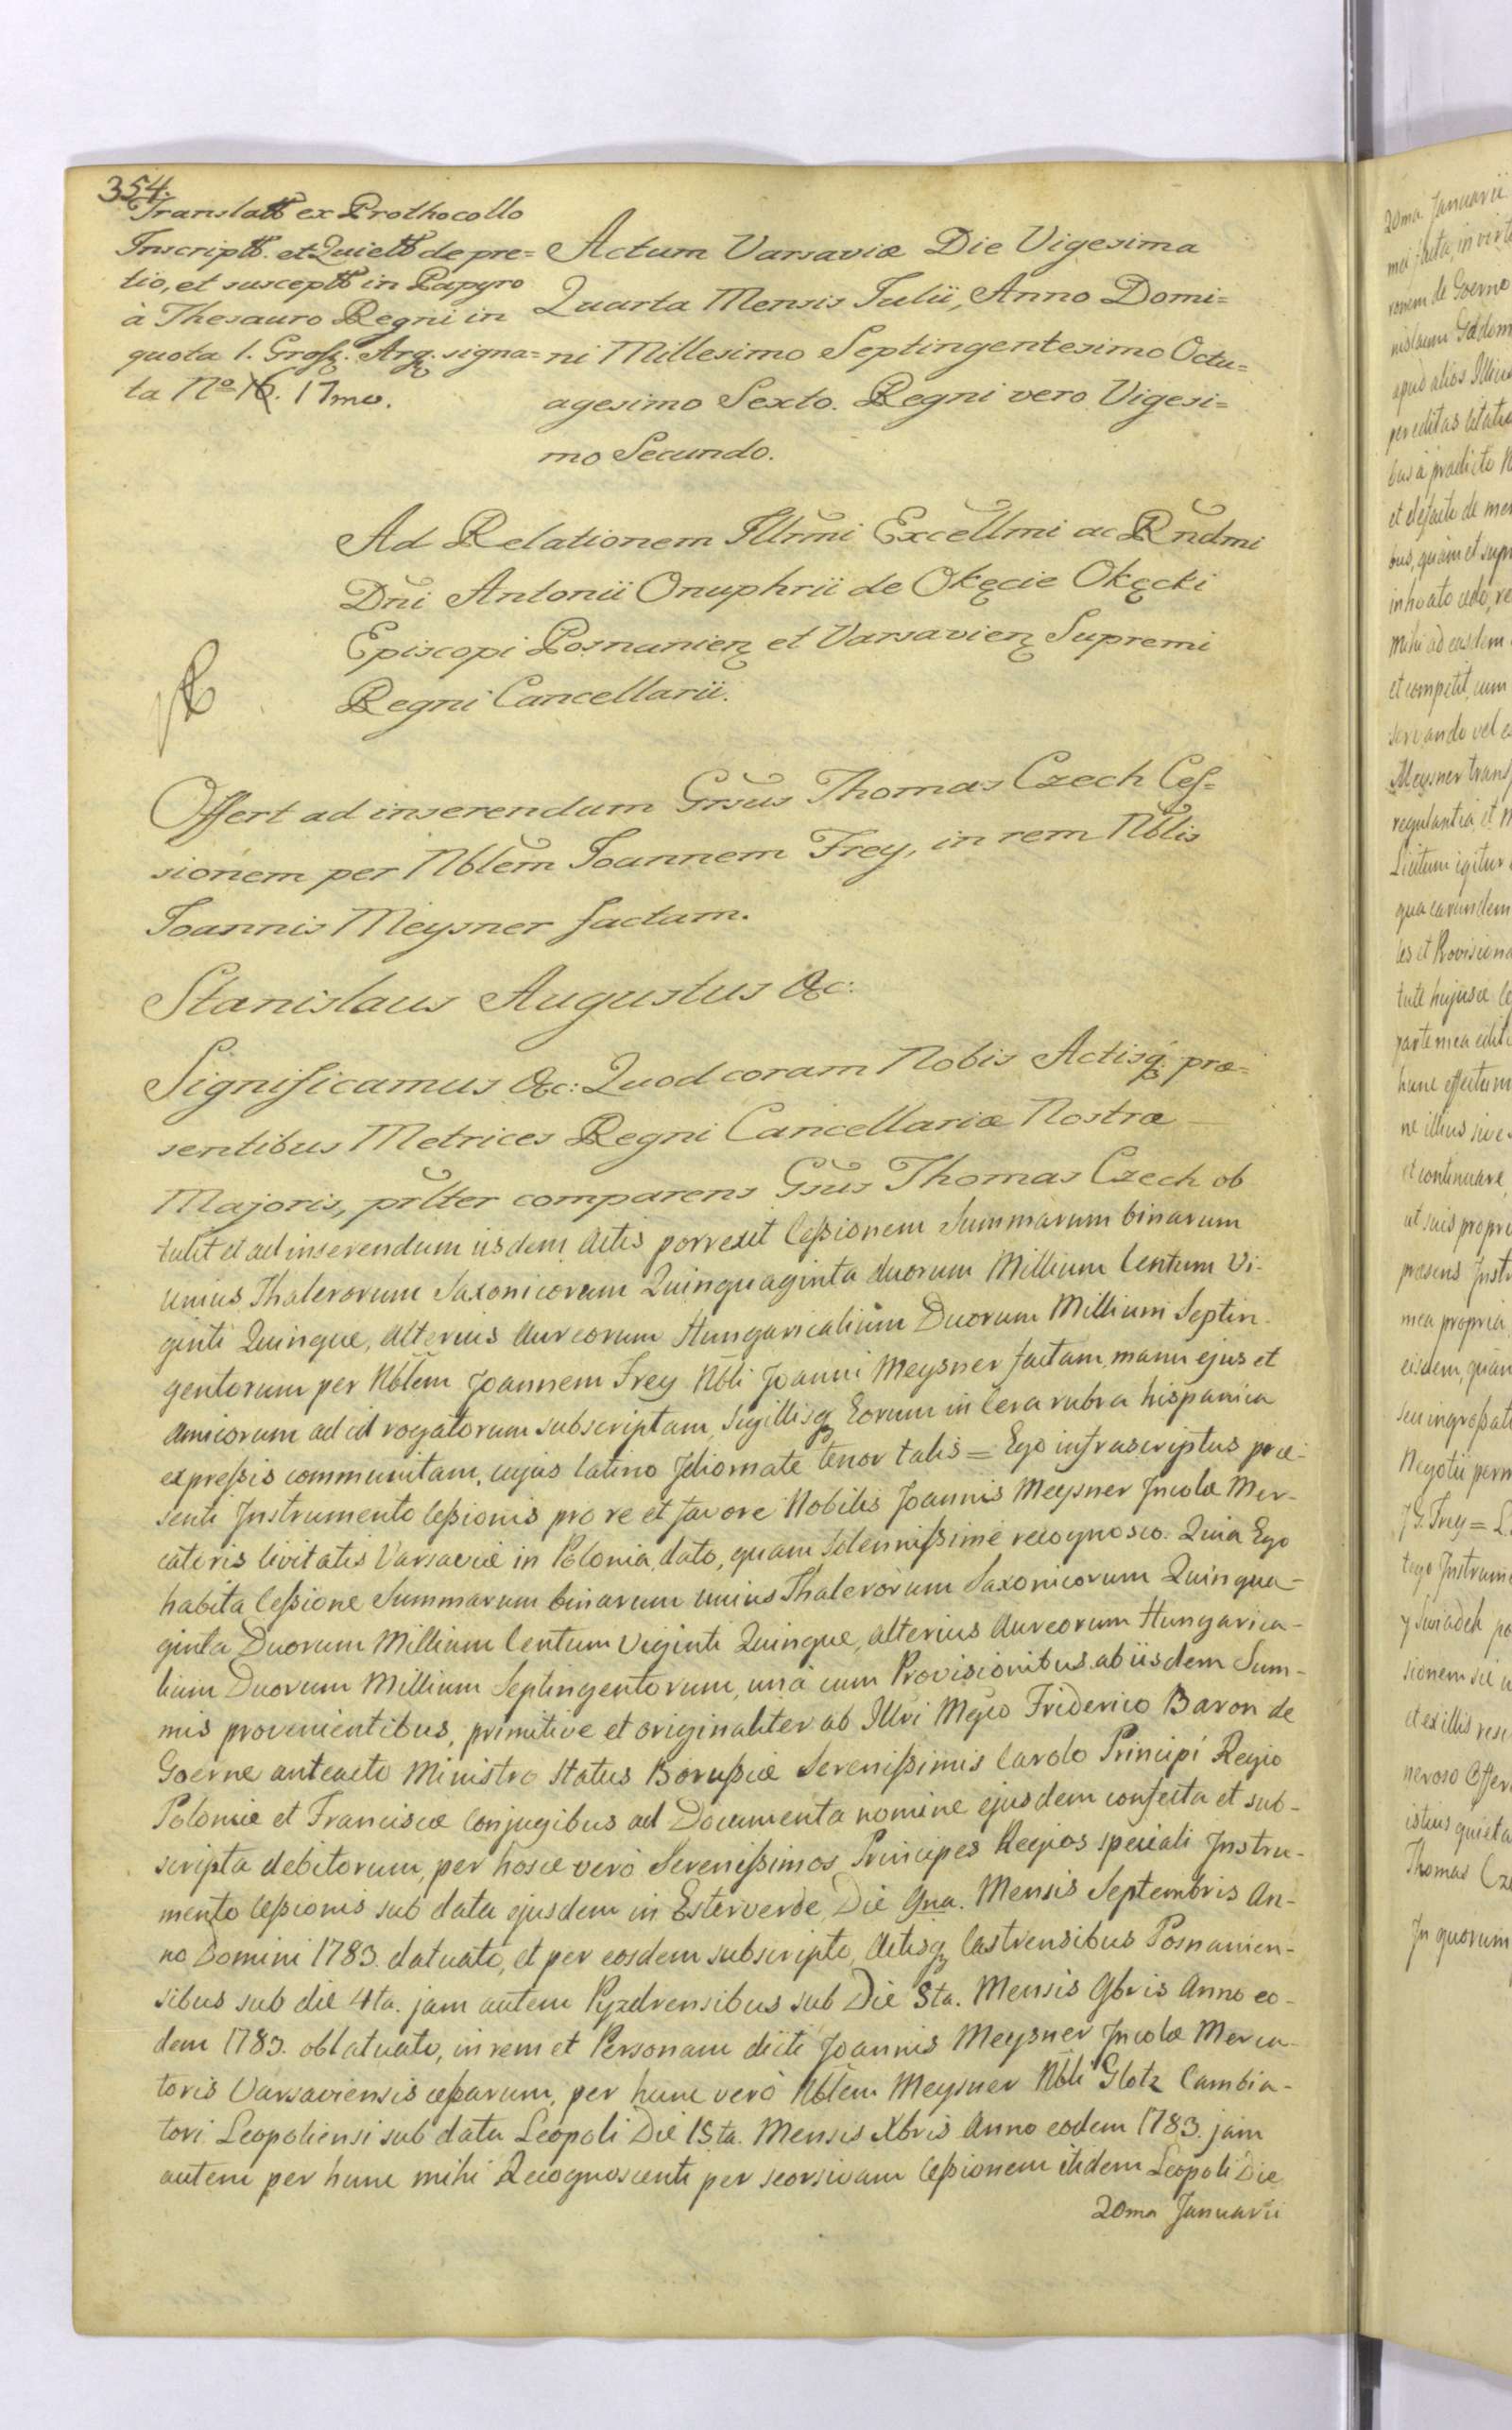 354.
Translatt ex Prothocollo
Inscriptt. et Quiett de pre=
tio, et susceptt in Papyro
à Thesauro Regni in
quota 1. Grosz. Arg. signa=
ta No 16. 17mo.
Actum Varsaviæ Die Vigesima
Quarta Mensis Julii, Anno Domi=
ni Millesimo Septingentesimo Octu=
agesimo Sexto. Regni vero Vigesi=
mo Secundo.
Ad Relationem Illrmi Excellmi ac Rndmi
Dni Antonii Onuphrii de Okęcie Okęcki
Episcopi Posnanien et Varsavien Supremi
Regni Cancellarii.
Offert ad inserendum Grsus Thomas Czech Ces=
sionem per Nblem Joannem Frey, in rem Nblis
Joannis Meysner factam.
Stanislaus Augustus &c:
Significamus &c: Quod coram Nobis Actisq; præ=
sentibus Metrices Regni Cancellariæ Nostræ
Majoris, prlter comparens Gsus Thomas Czech ob
tulit et ad inserendum iisdem Actis porrexit Cessionem Summarum binarum
unius Thalerorum Saxonicorum Quinquaginta duorum Millium Centum Vi-
ginti Quinque, alterius Aureorum Hungaricalium Duorum Millium Septin-
gentorum per Nblem Joannem Frey Nbli Joanni Meysner factam, manu ejus et
Amicorum ad id rogatorum subscriptam, Sigillisq Eorum in Cera rubra hispanica
expressis communitam, cujus latino Jdiomate tenor talis = Ego infrascriptus præ-
senti Jnstrumento Cessionis pro re et favore Nobilis Joannis Meysner Jncolæ Mer-
catoris Civitatis Varsaviæ in Polonia, dato, quam solennissime recognosco. Quia Ego
habita Cessione Summarum binarum unius Thalerorum Saxonicorum Quinqua-
ginta Duorum Millium Centum Viginti Quinque, alterius Aureorum Hungarica-
lium Duorum Millium Septingentorum, unà cum Provisionibus ab iisdem Sum-
mis provenientibus, primitive et originaliter ab Illri Mgco Friderico Baron de
Goerne anteacto Ministro Status Borussiæ Serenissimis Carolo Principi Regio
Poloniæ et Franciscæ Conjugibus ad Documenta nomine ejusdem confecta et sub-
scripta debitorum, per hosce verò Serenissimos Principes Regios speciali Jnstru-
mento Cessionis sub data ejusdem in Esterverde, Die 9na. Mensis Septembris An-
no Domini 1783. datuato, et per eosdem subscripto, Actisq Castrensibus Posnanien-
sibus sub die 4ta. jam autem Pyzdrensibus sub Die 8ta. Mensis 9bris Anno eo-
dem 1783. oblatuato, in rem et Personam dicti Joannis Meysner Jncolæ Merca-
toris Varsaviensis cessarum, per hunc verò Nblem Meysner Nbli Glotz Cambia-
tori Leopoliensi sub data Leopoli Die 15ta. Mensis Xbris Anno eodem 1783. jam
autem per hunc mihi Recognoscenti per seorsivam Cessionem itidem Leopoli Die
20ma Januarii